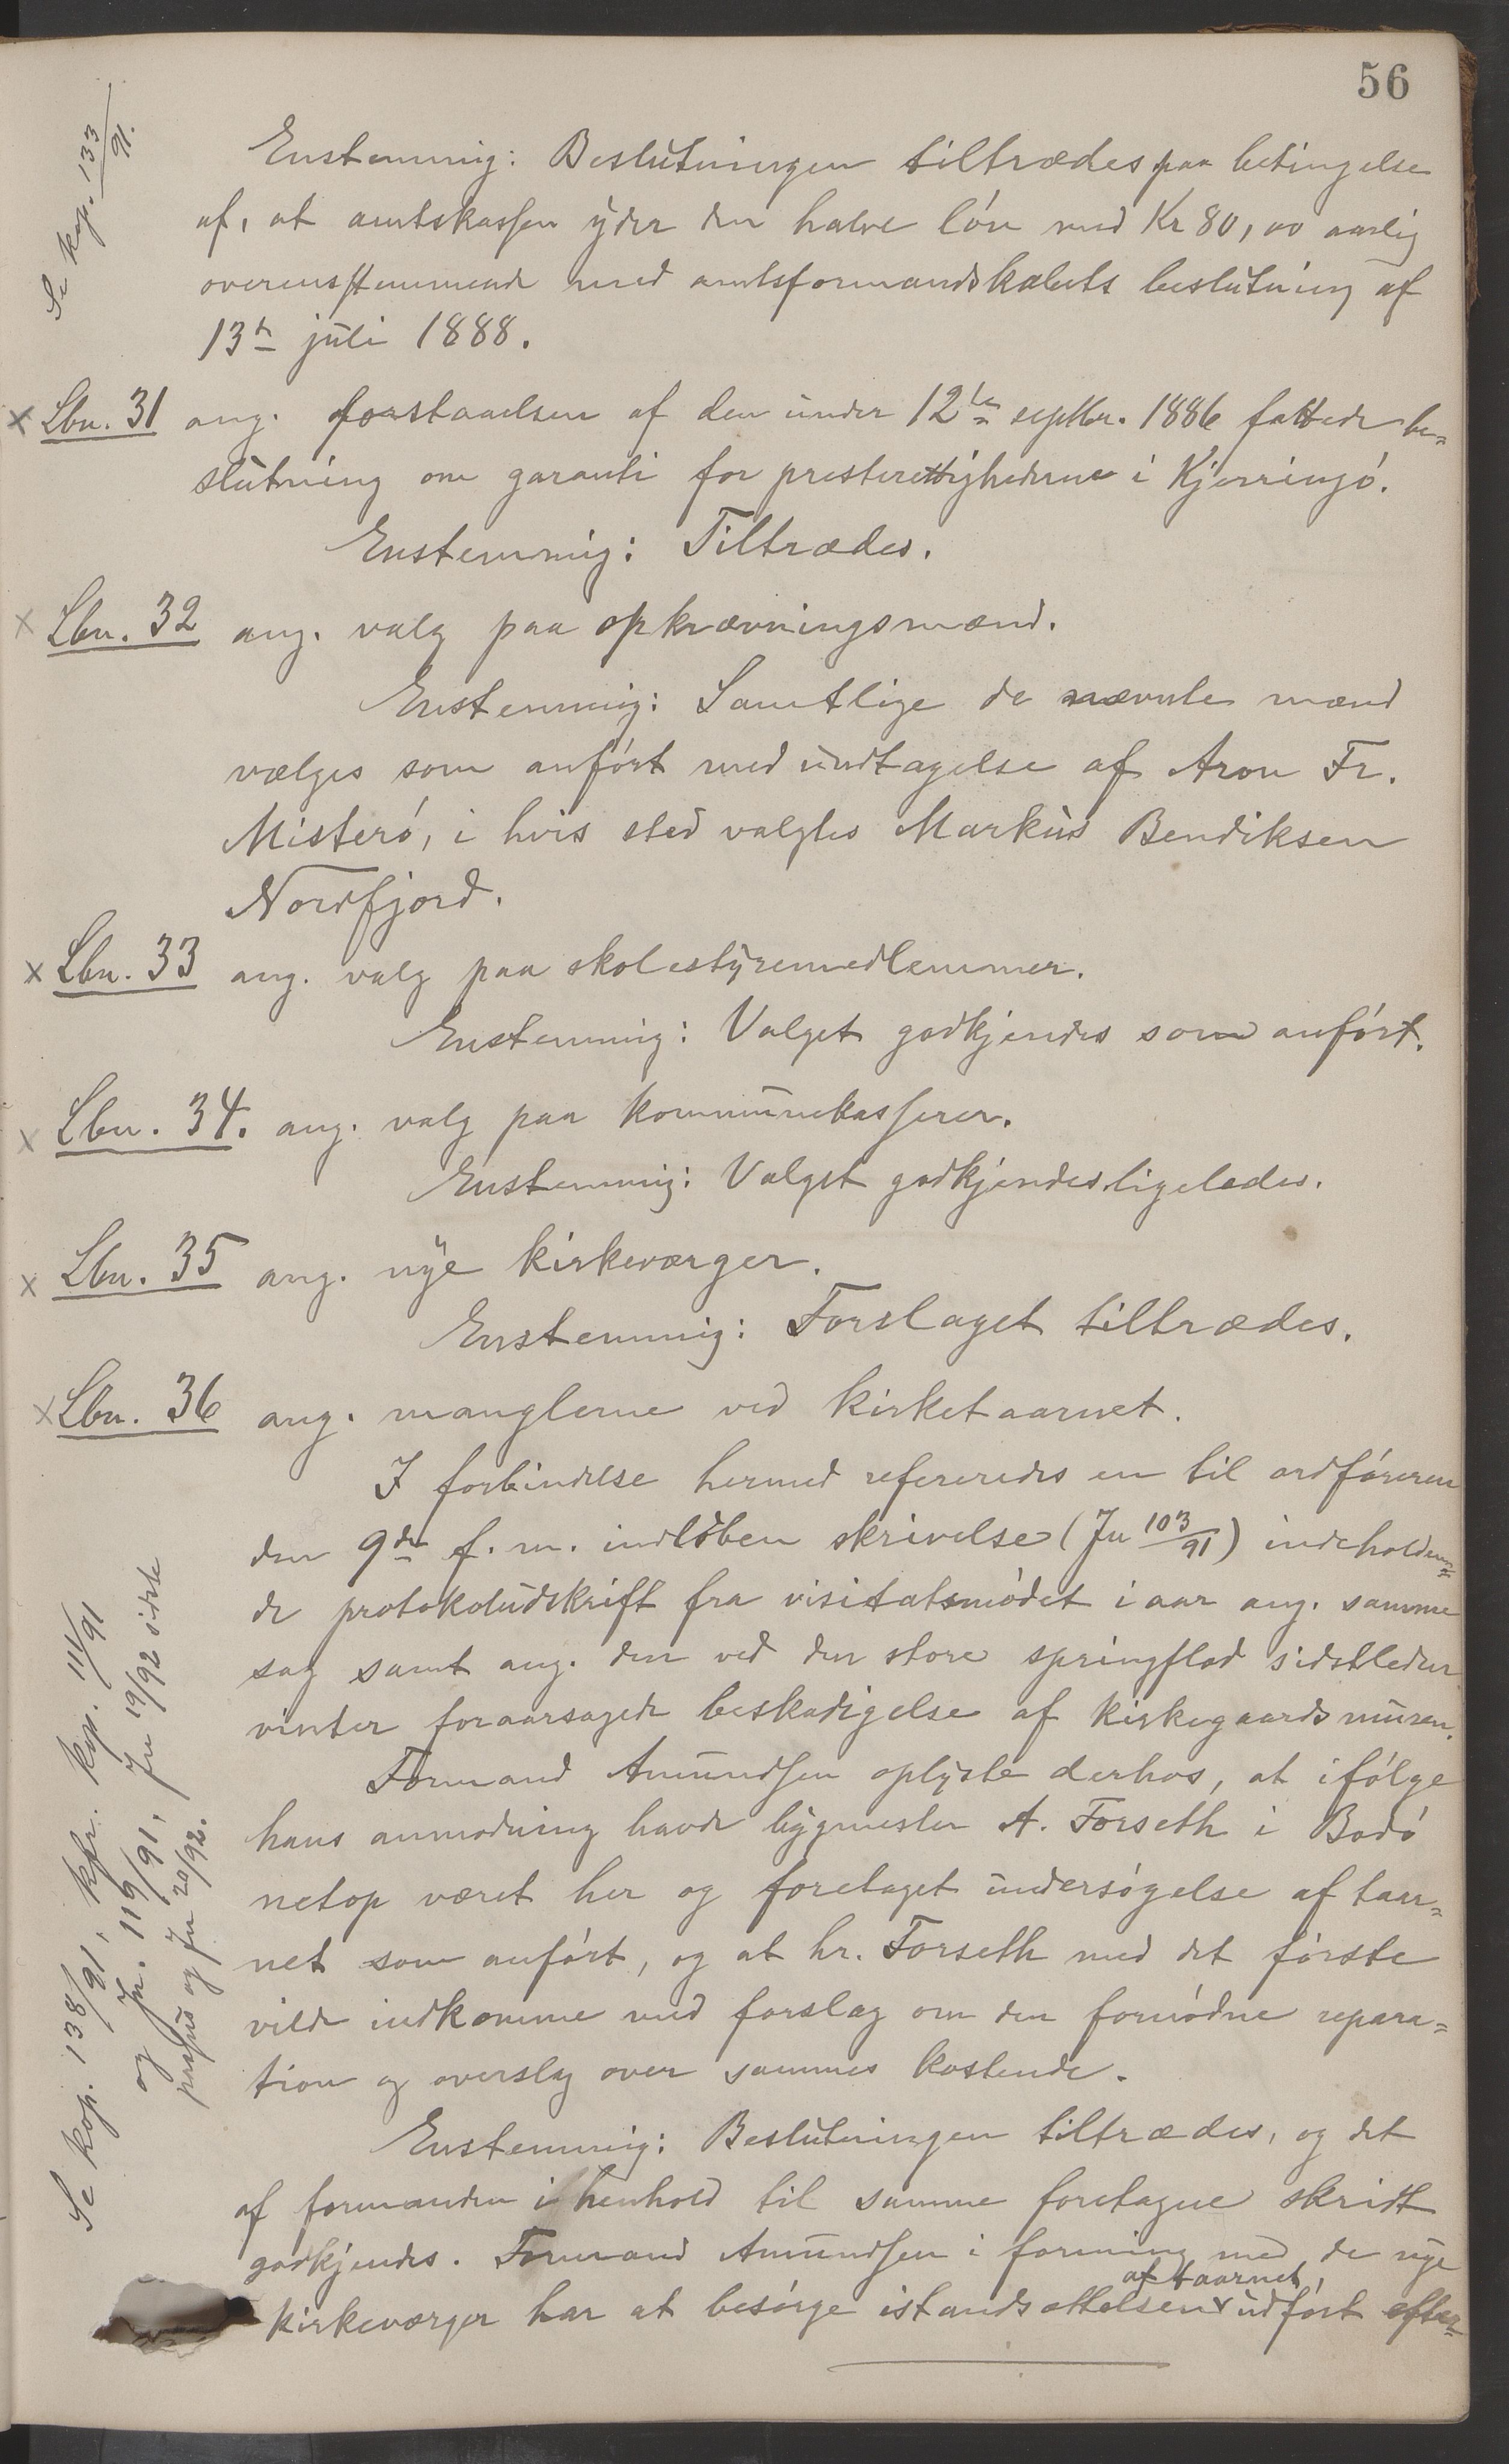 56
Se kop. 133/91.
Enstemmig: Beslutningen tiltrædes paa betingelse
af, at amtskassen yder den halve løn med Kr 80,00 aarlig
overensstemmende med amtsformandskabets beslutning af
13de juli 1888.
x Lbn. 31 ang. forstaaelsen af den under 12te septbr. 1886 fattede be=
slutning om garanti for presterettighederne i Kjerringø.
Enstemmig: Tiltrædes.
x Lbn. 32 ang. valg paa opkrævningsmænd.
Enstemmig: Samtlige de nævnte mænd
vælges som anført med undtagelse af Aron Fr.
Misterø, i hvis sted valgtes Markus Bendiksen
Nordfjord.
x Lbn. 33 ang. valg paa skolestyremedlemmer.
Enstemmig: Valget godkjendes som anført.
x Lbn. 34. ang. valg paa kommunekasserer.
Enstemmig: Valget godkjendes ligeledes.
x Lbn. 35 ang. nye kirkeværger.
Enstemmig: Forslaget tiltrædes.
x Lbn. 36 ang. manglerne ved kirketaarnet.
I forbindelse hermed refereredes en til ordføreren
den 9de f. m. indløben skrivelse (Jn 103/91) indeholden=
de protokoludskrift fra visitatsmødet i aar ang. samme
sag samt ang. den ved den store springflod sidstleden
vinter foraarsagede beskadigelse af kirkegaardsmuren.
Formand Amundsen oplyste derhos, at ifølge
hans anmodning havde bygmester A. Forseth i Bodø
netop været her og foretaget undersøgelse af taar=
net som anført, og at hr. Forseth med det første
vilde indkomme med forslag om den fornødne repara=
tion og overslag over sammes kostende.
Enstemmig: Beslutningen tiltrædes, og det
af formanden i henhold til samme foretagne skridt
godkjendes. Formand Amundsen i forening med de nye
af taarnet,
kirkeværger har at besørge istandsættelsen udført efter=
Se kop. 138/91, kfr. kop. 111/91
og Jn. 119/91, Jn 19/92 sidste
passus og Jn 20/92.